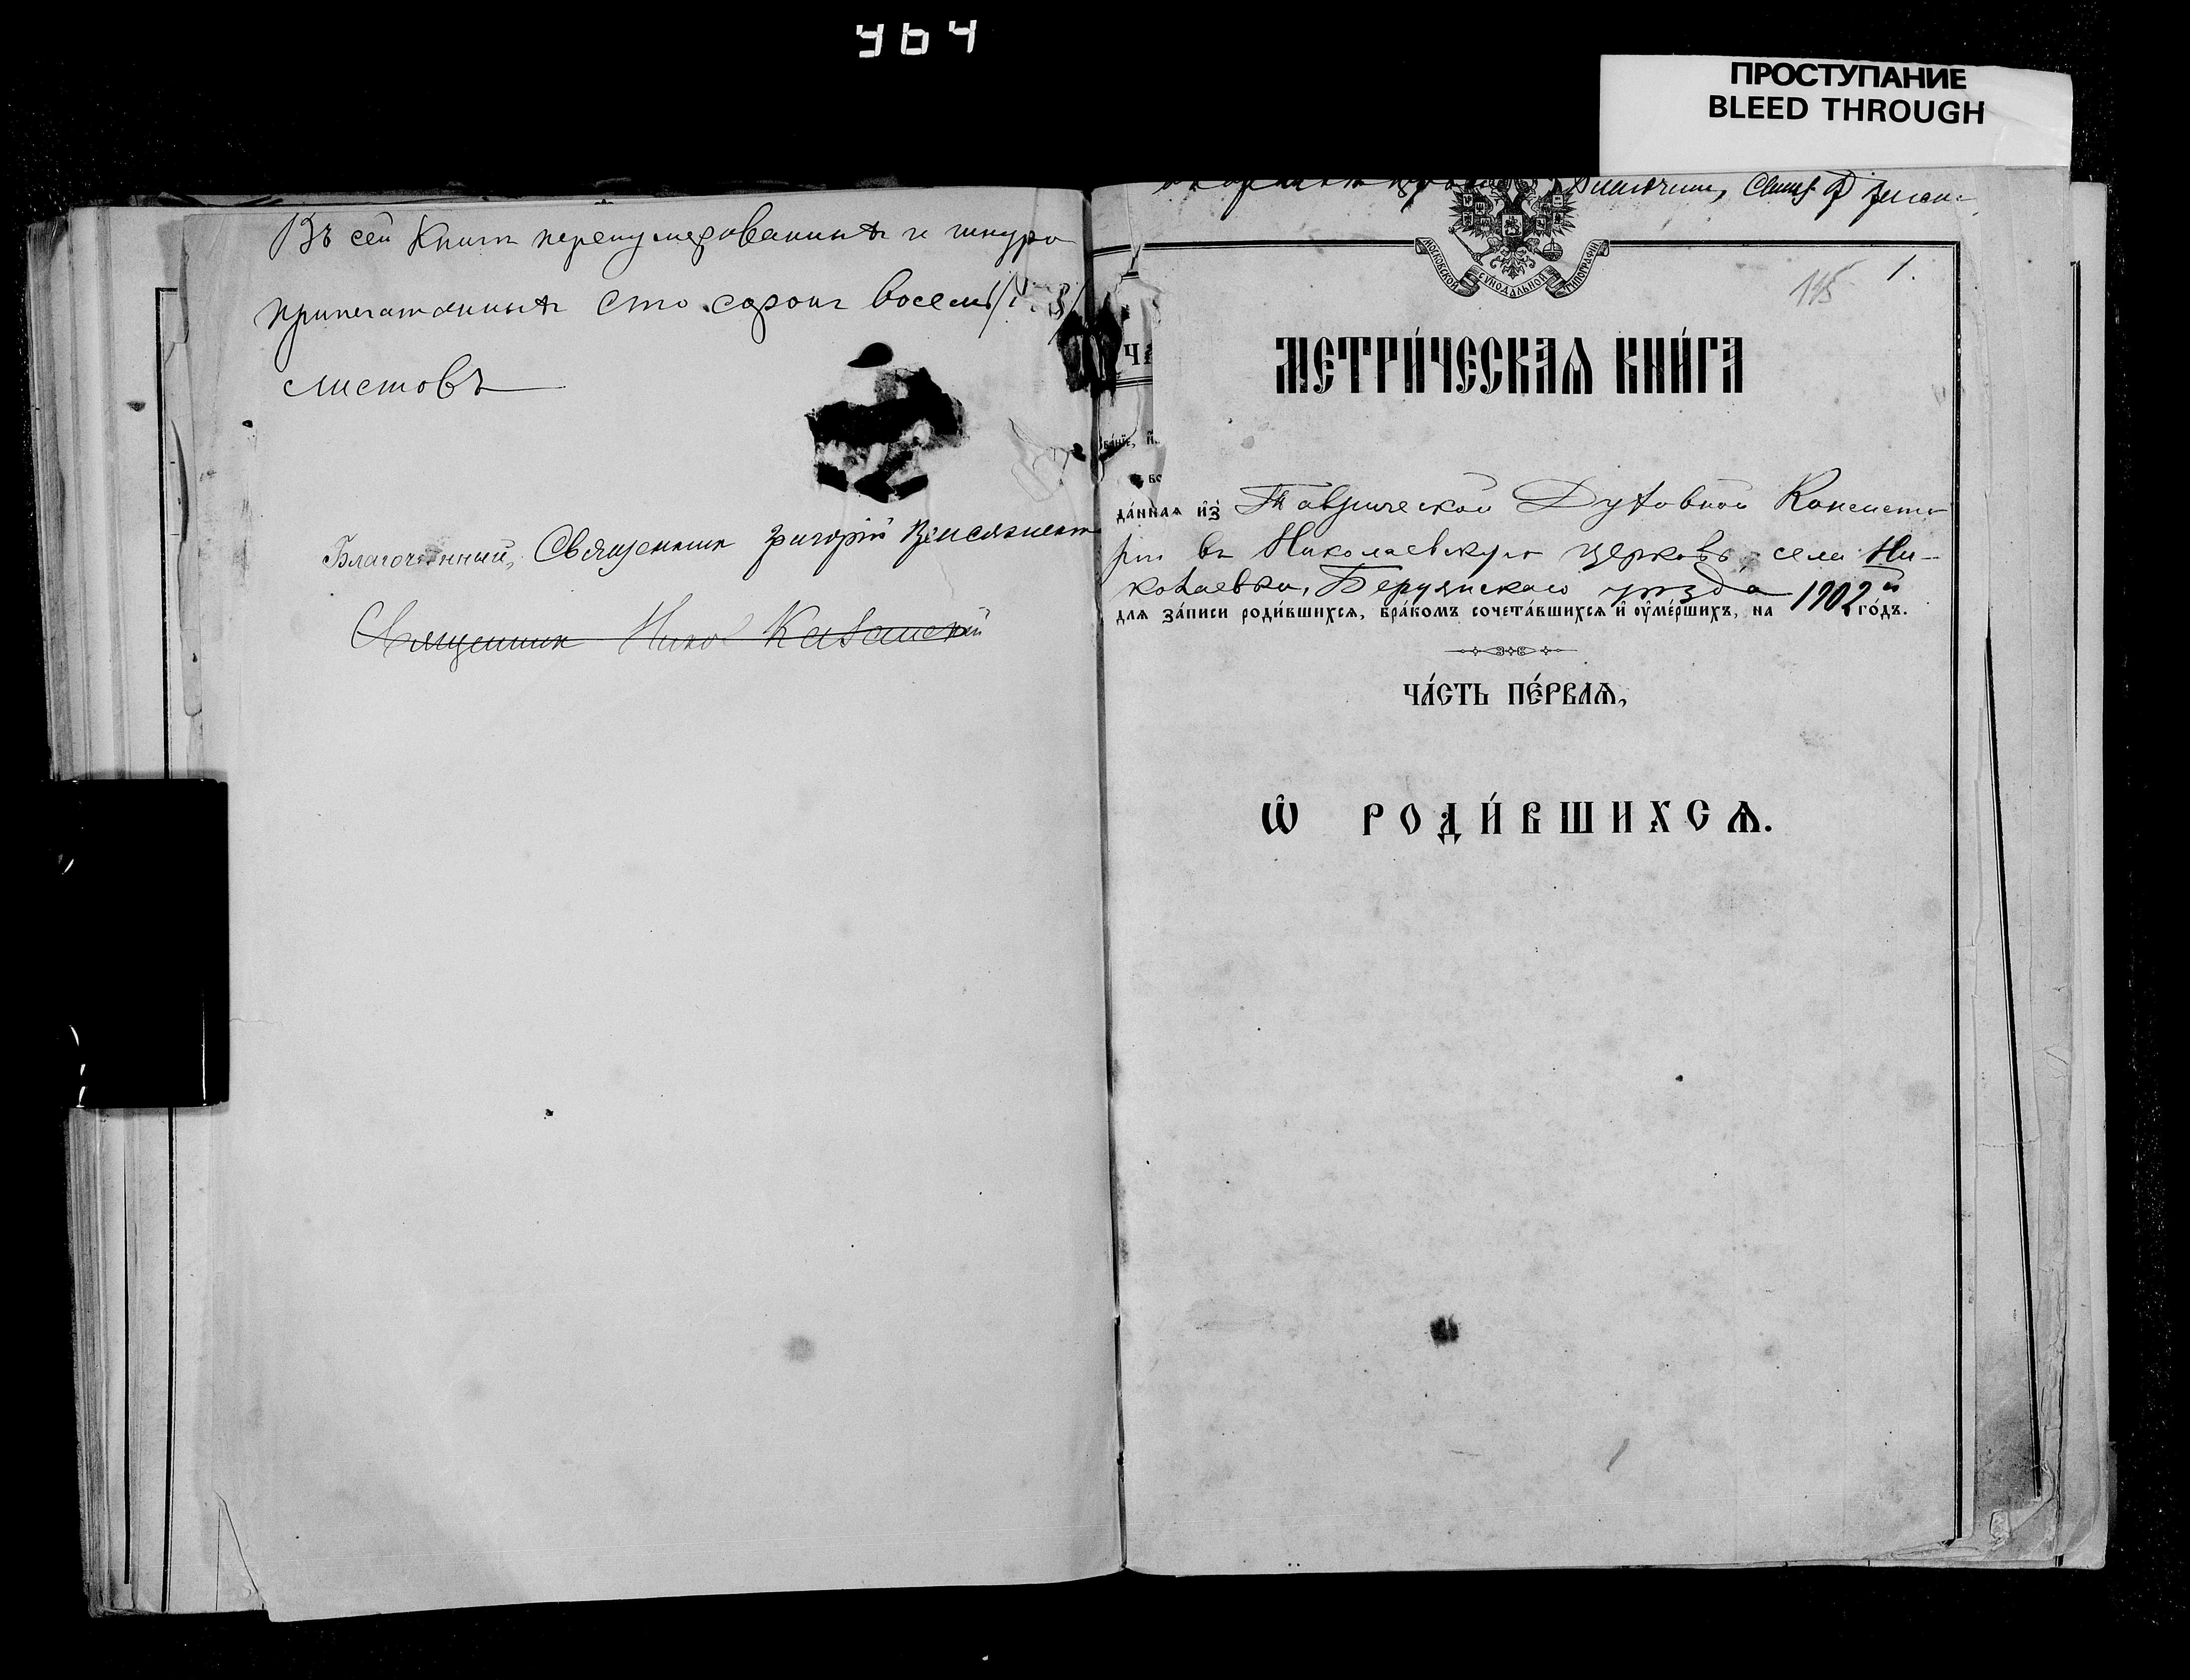 464
ПРОСТУПАНИЕ
BLEED THROUGH
Въ сей Книгѣ перенумерованныхъ и шнуро
припечатанныхъ сто сорокъ восемь
листовъ
Благочинный, Священникъ Григорій
Священникъ
МОСКОВСКОЙ СѴНОДАЛЬНОЙ ТИПОГРАФІИ
115 1.
МЕТРИ́ЧЕСКАѦ КНИ́ГА
да́ннаѧ и҆з̾ Таврической Духовной Консисто
ріи въ Николаевскую церковь, села Ни-
колаевки, Бердянскаго уѣзда 1902й
для за́писи роди́вшихсѧ, бра́комъ сочета́вшихсѧ и҆ ᲂу҆ме́ршихъ, на го́дъ.
ЧА́СТЬ ПЕ́РВАѦ,
Ѡ҆ РОДИ́ВШИХСѦ.